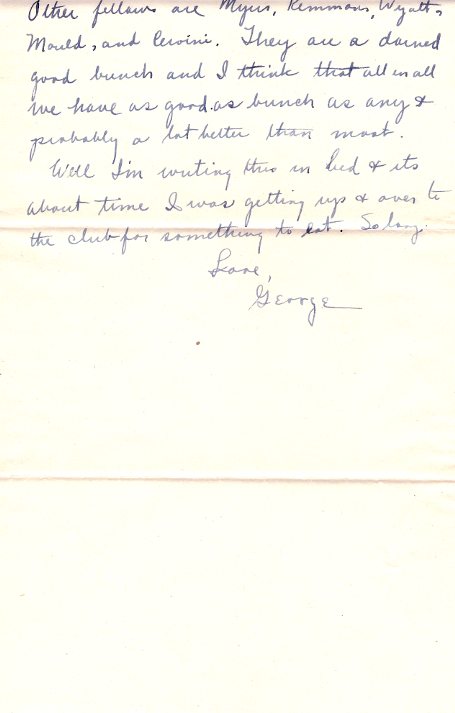 Other fellows are Myers, Remmons, Wyatt,
Mould, and Cervini. They are a darned
good bunch and I think that all in all
we have as good as bunch as any &
probably a lot better than most.
Well I'm writing this in bed & its
about time I was getting up & over to
the club for something to eat. So long.
Love,
George